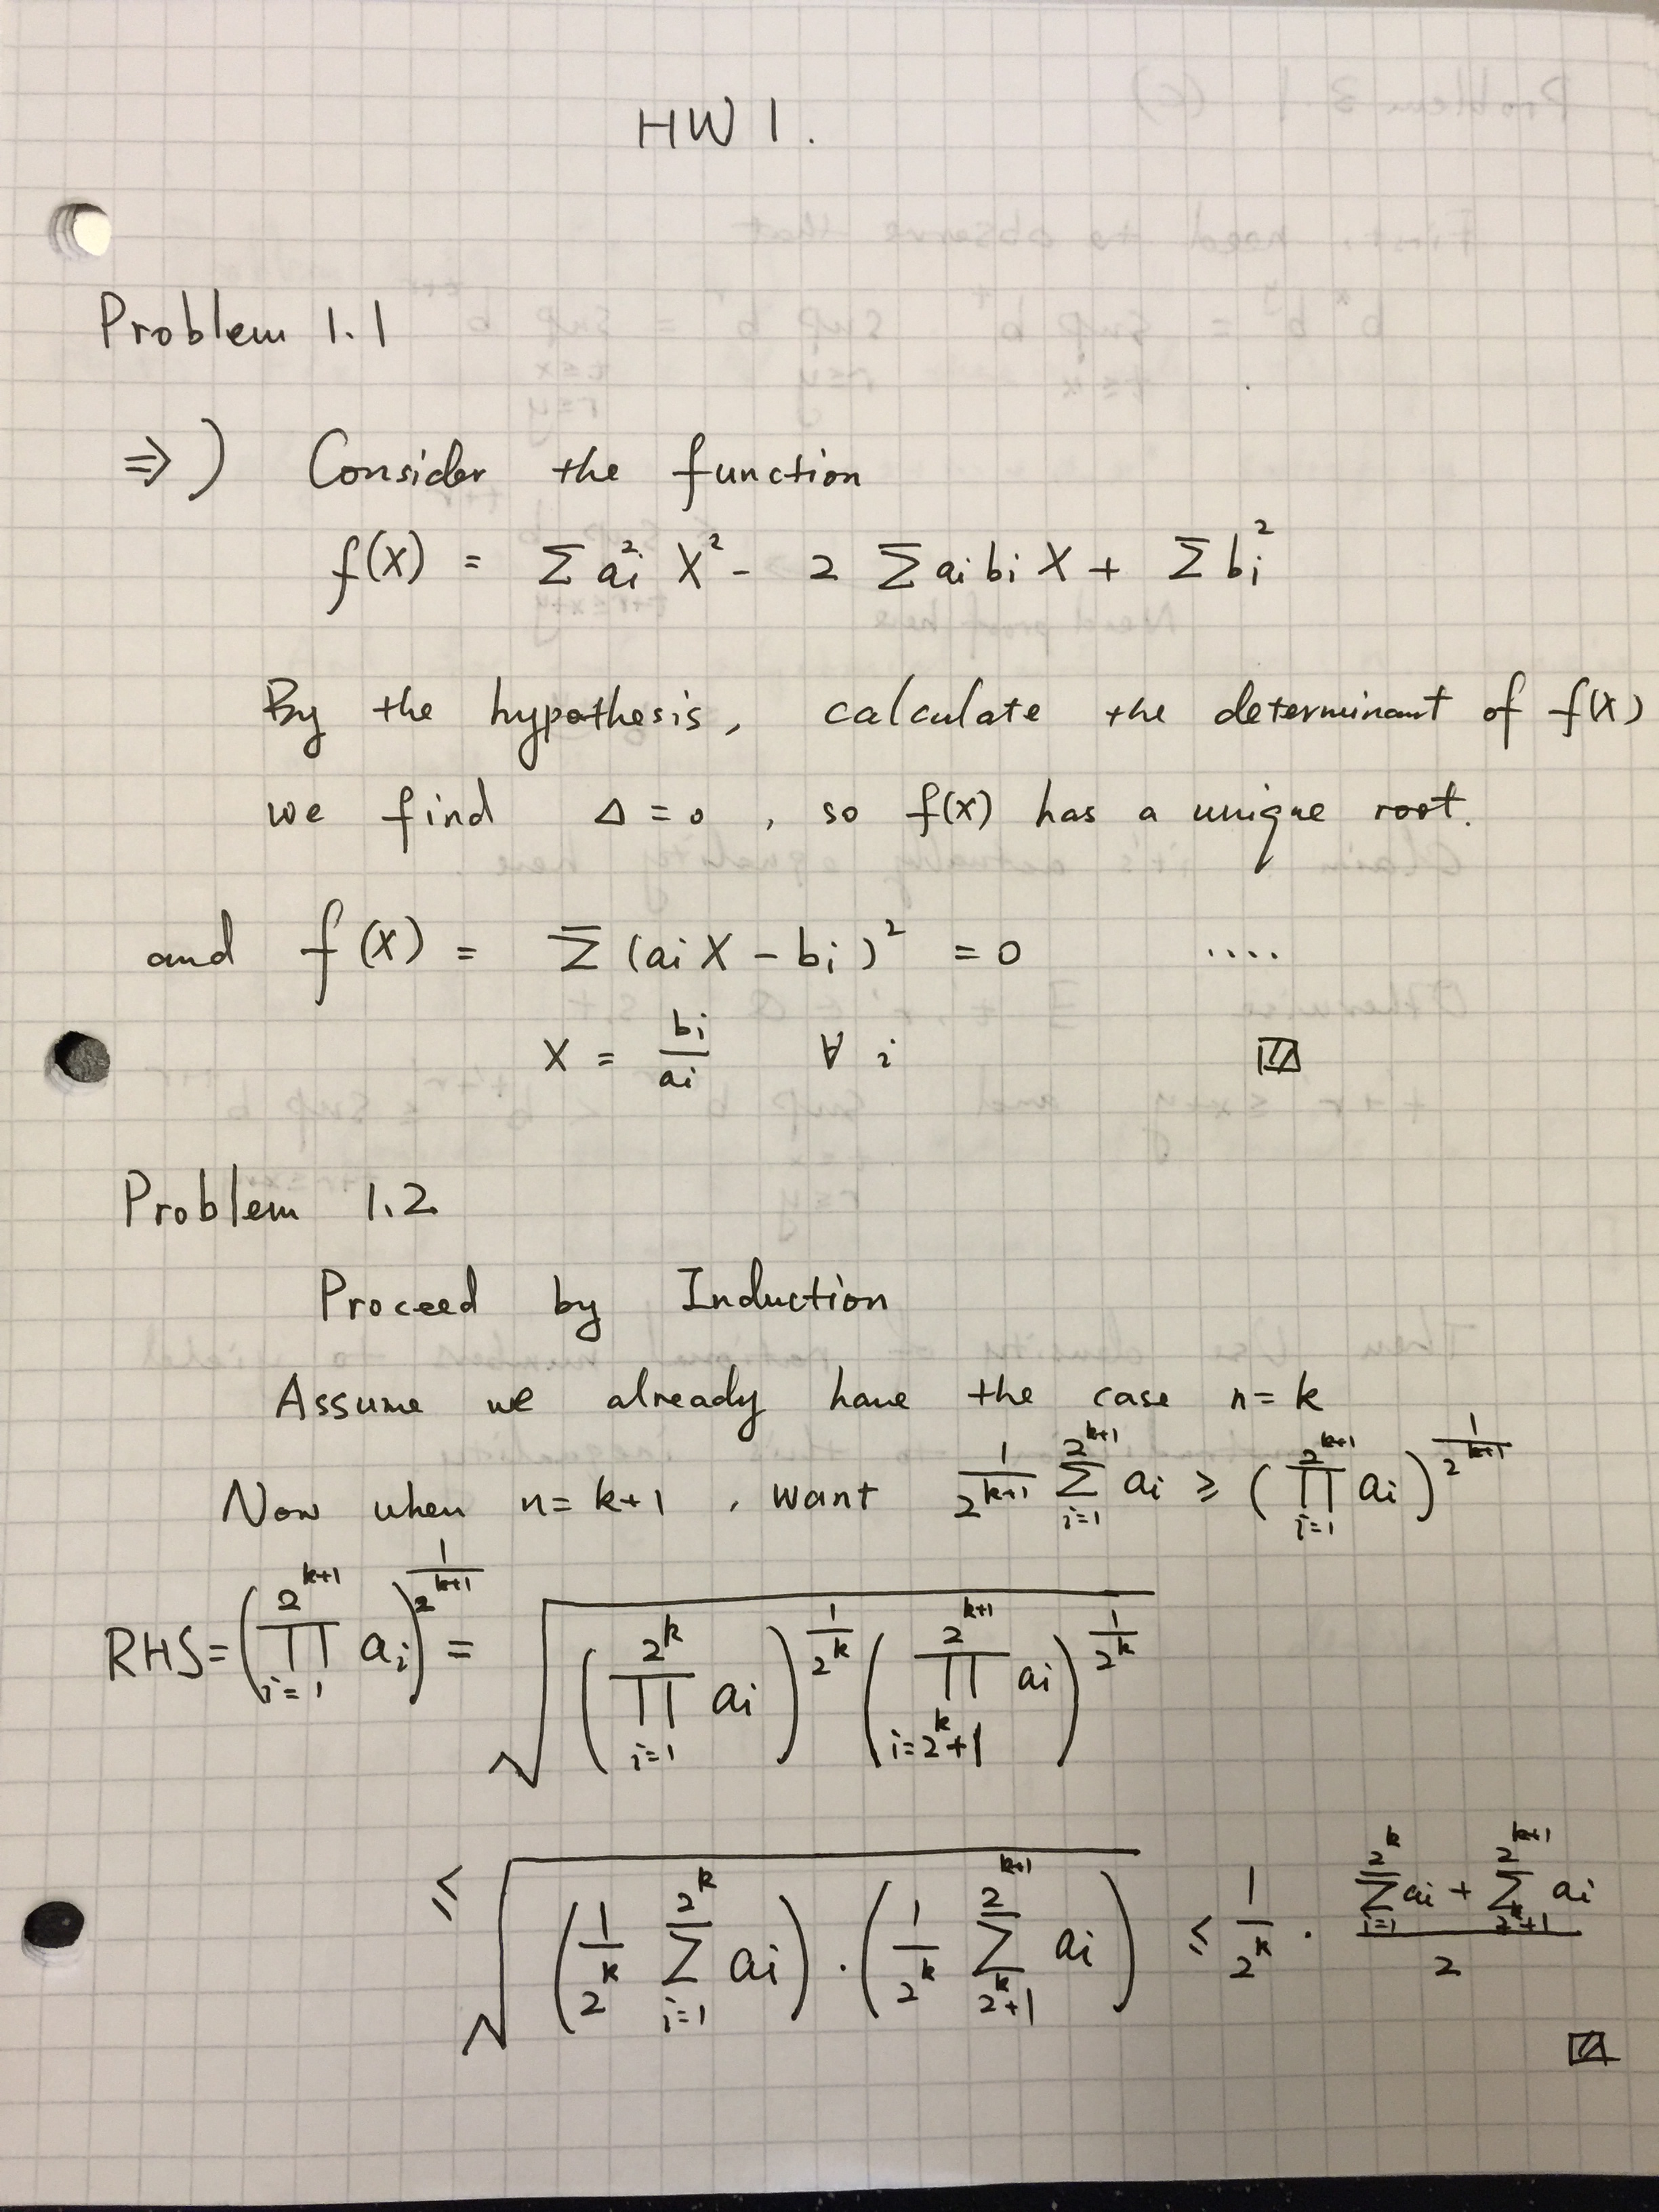 HW 1.
Problem 1.1
⇒) Consider the function
f(x) = Σ aᵢ² X² - 2 Σ aᵢ bᵢ X + Σ bᵢ²
By the hypothesis, calculate the determinant of f(x)
we find Δ = 0 , so f(x) has a unique root.
and f(x) = Σ (aᵢ X - bᵢ)² = 0 ....
X = bᵢ/aᵢ ∀ i
Problem 1.2
Proceed by Induction
Assume we already have the case n = k
Now when n = k+1 , want 1/2^{k+1} Σ_{i=1}^{2^{k+1}} aᵢ ≥ (∏_{i=1}^{2^{k+1}} aᵢ)^{1/2^{k+1}}
RHS = (∏_{i=1}^{2^{k+1}} aᵢ)^{1/2^{k+1}} = √((∏_{i=1}^{2^k} aᵢ)^{1/2^k} (∏_{i=2^k+1}^{2^{k+1}} aᵢ)^{1/2^k})
≤ √((1/2^k Σ_{i=1}^{2^k} aᵢ) · (1/2^k Σ_{2^k+1}^{2^{k+1}} aᵢ)) ≤ 1/2^k · (Σ_{i=1}^{2^k} aᵢ + Σ_{2^k+1}^{2^{k+1}} aᵢ)/2